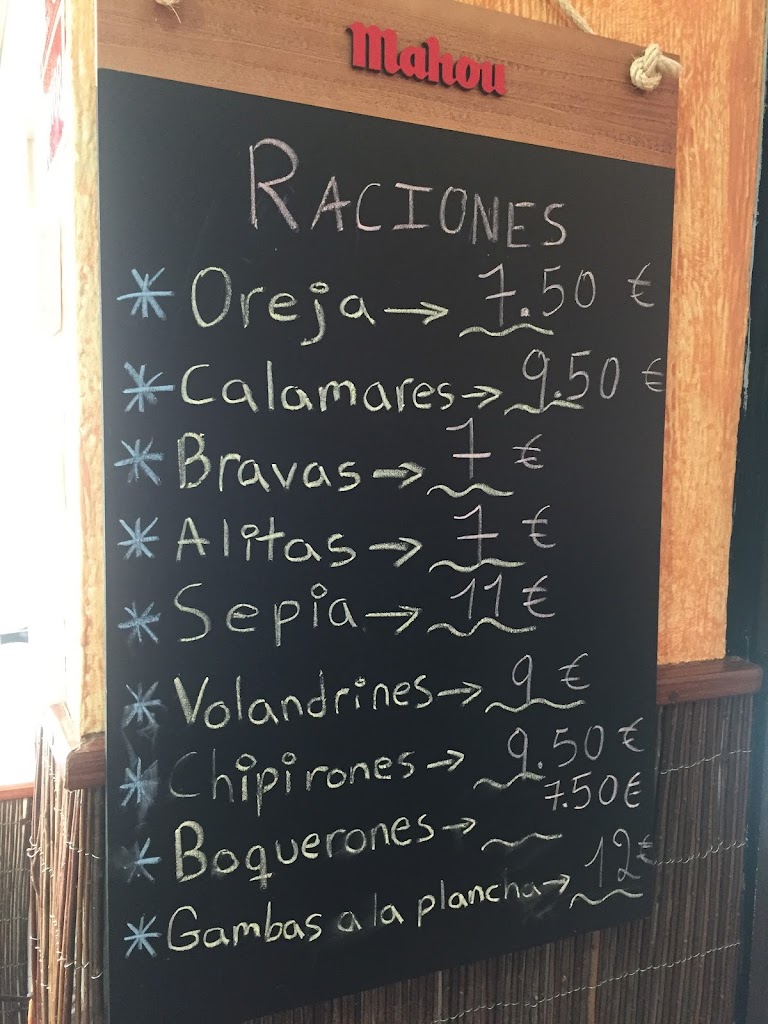 Mahou
RACIONES
* Oreja → 7.50 €
* Calamares → 9.50 €
* Bravas → 7 €
* Alitas → 7 €
* Sepia → 11 €
* Volandrines → 9 €
* Chipirones → 9.50 €
* Boquerones → 7.50 €
* Gambas a la plancha → 12 €